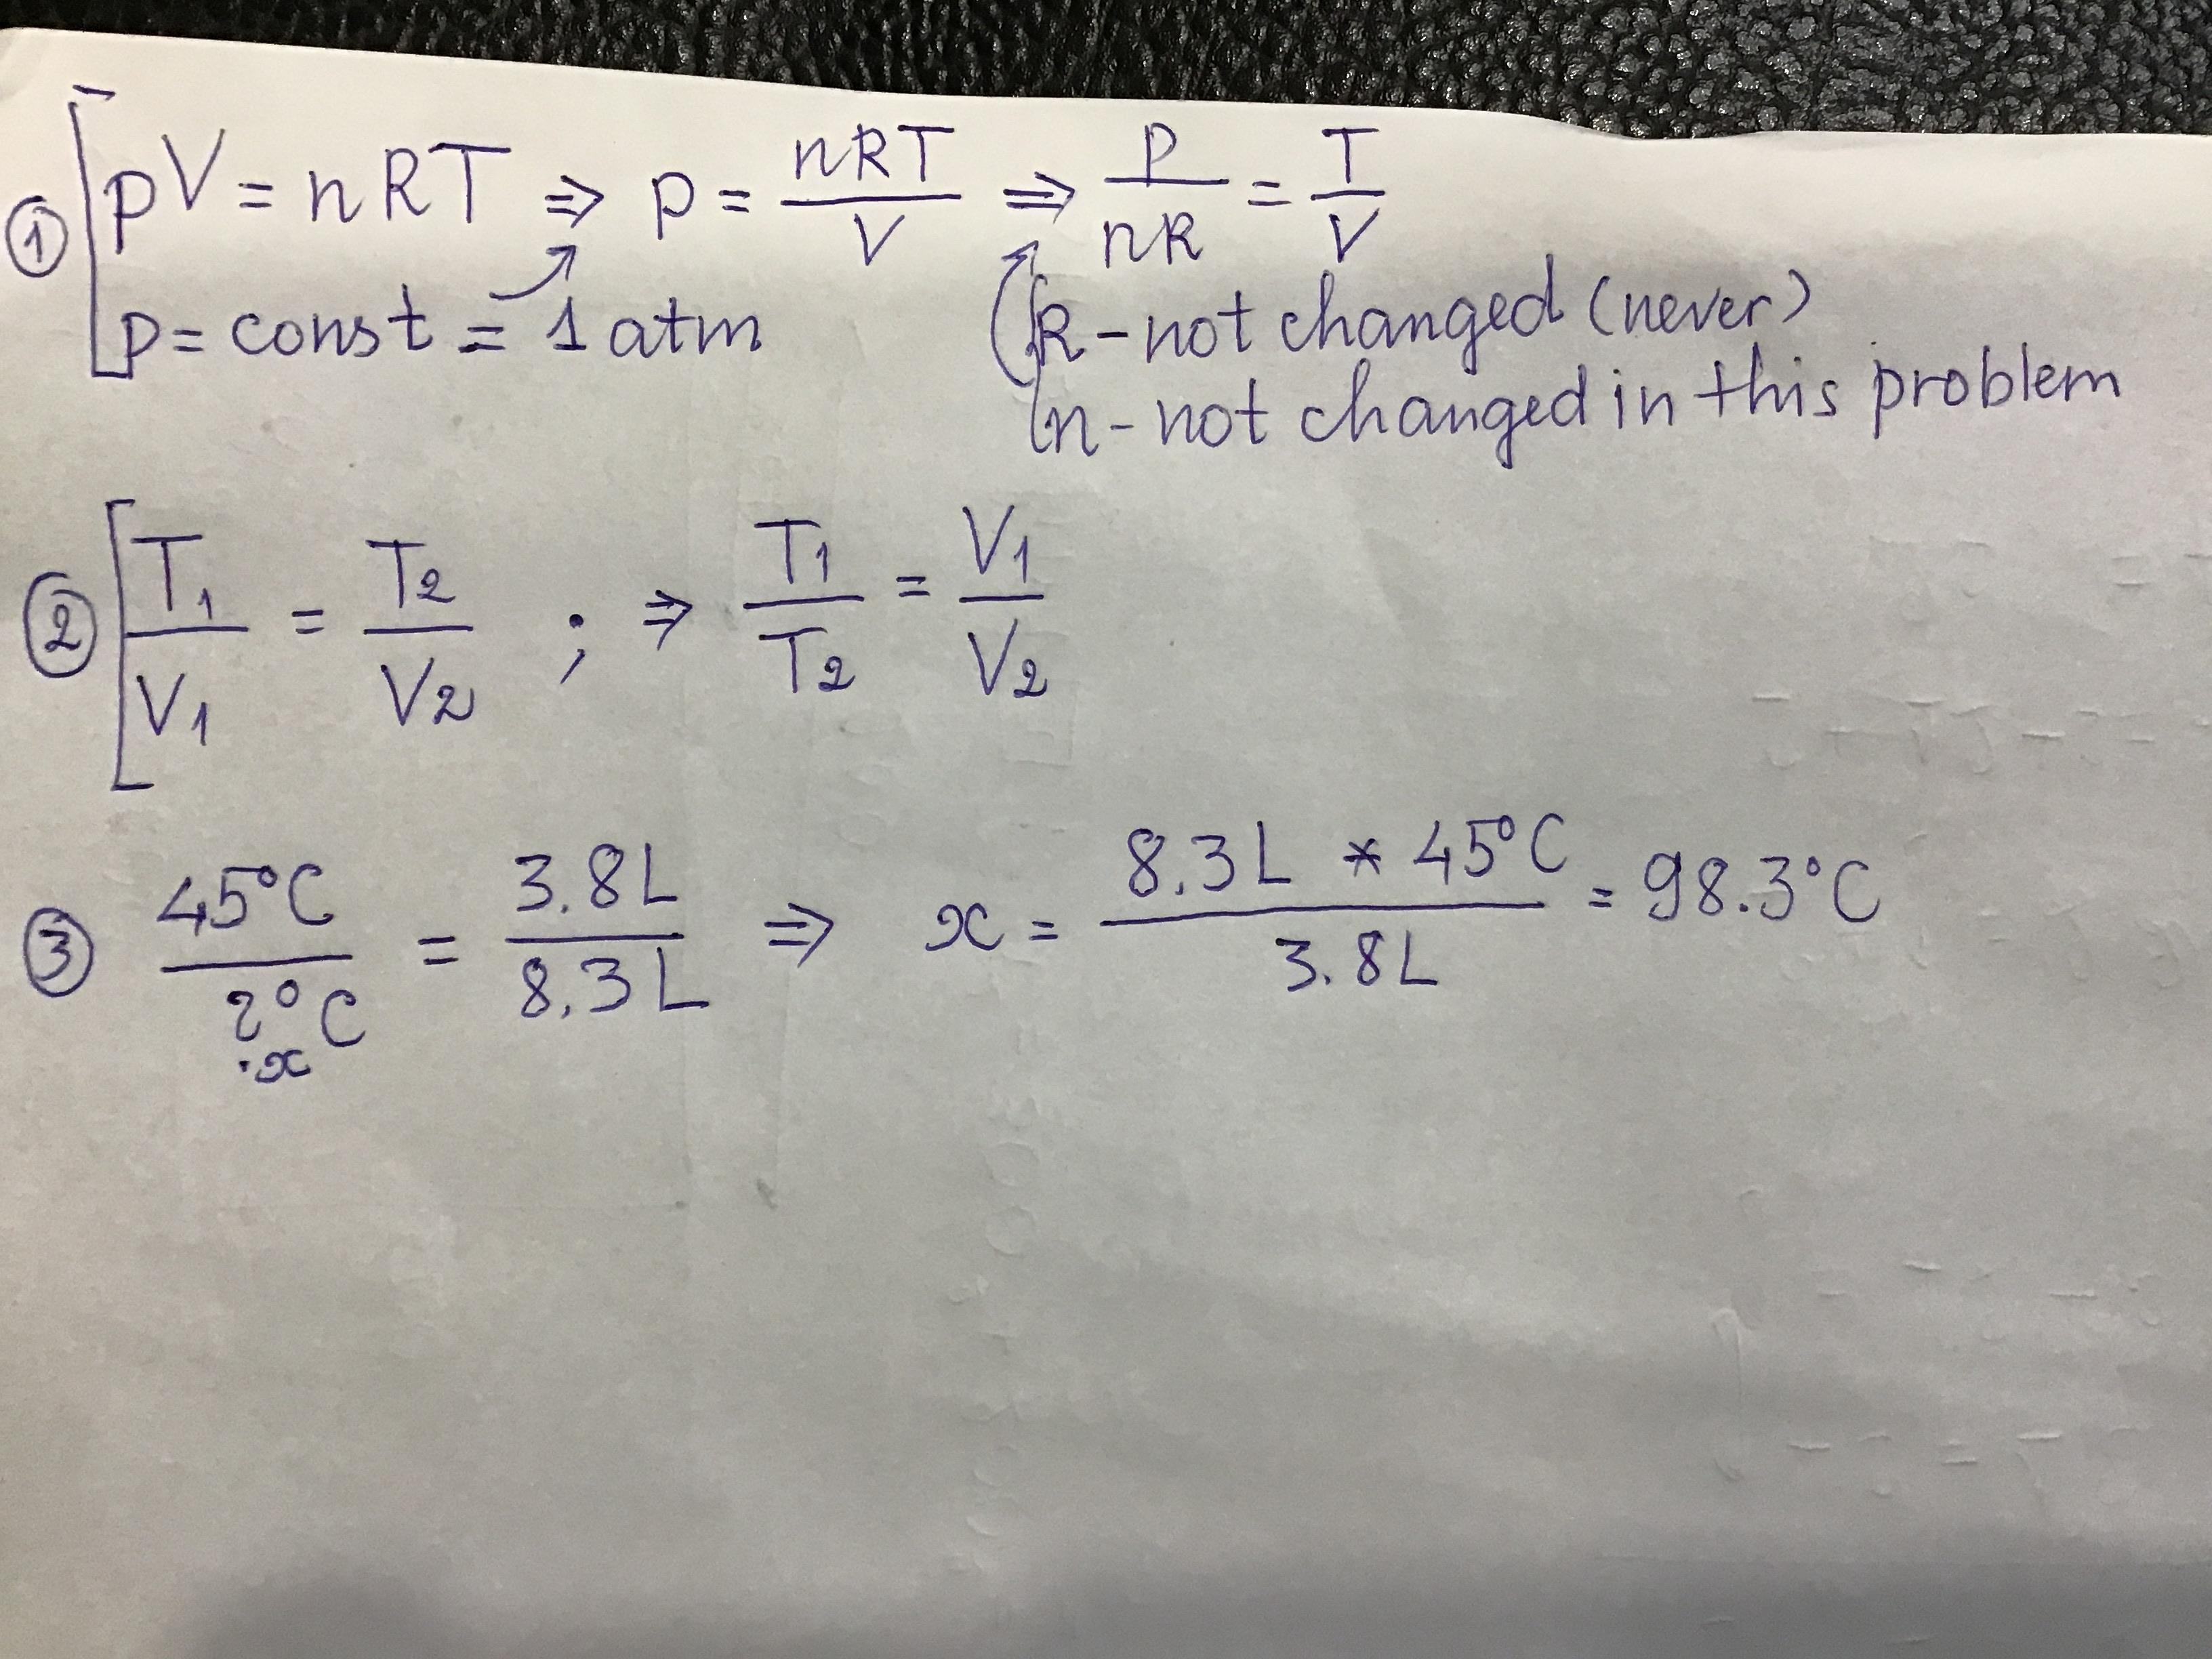 ① pV = nRT ⇒ p = nRT/V ⇒ p/nR = T/V
p = const = 1 atm
R - not changed (never)
n - not changed in this problem
② T1/V1 = T2/V2 ; ⇒ T1/T2 = V1/V2
③ 45°C/?°C = 3.8L/8.3L ⇒ x = 8.3L * 45°C/3.8L = 98.3°C
x